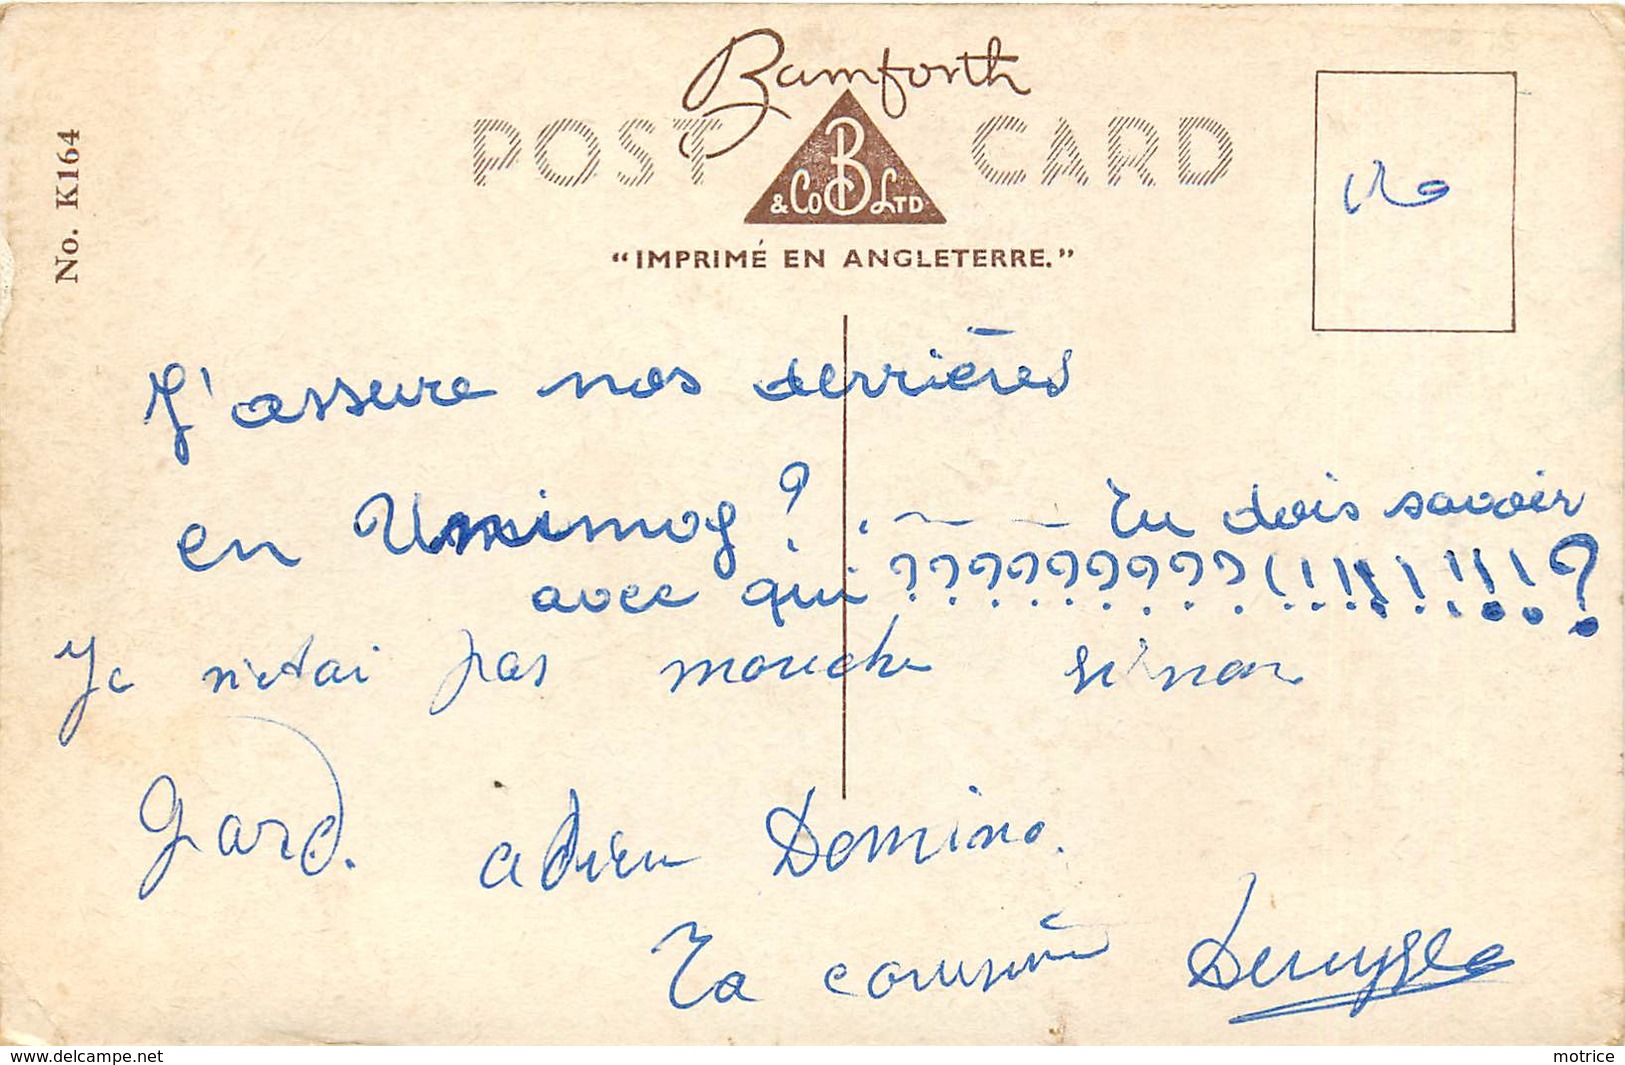 Bamforth
POST CARD
& Co B LTD
"IMPRIMÉ EN ANGLETERRE."
No. K164
J'assure nos derrières
en Unimog? Tu dois savoir
avec qui ?????????(!!!!!!!!?
Je n'etai pas mouche sinon
gard. adieu Domino.
Ta cousine
www.delcampe.net
motrice